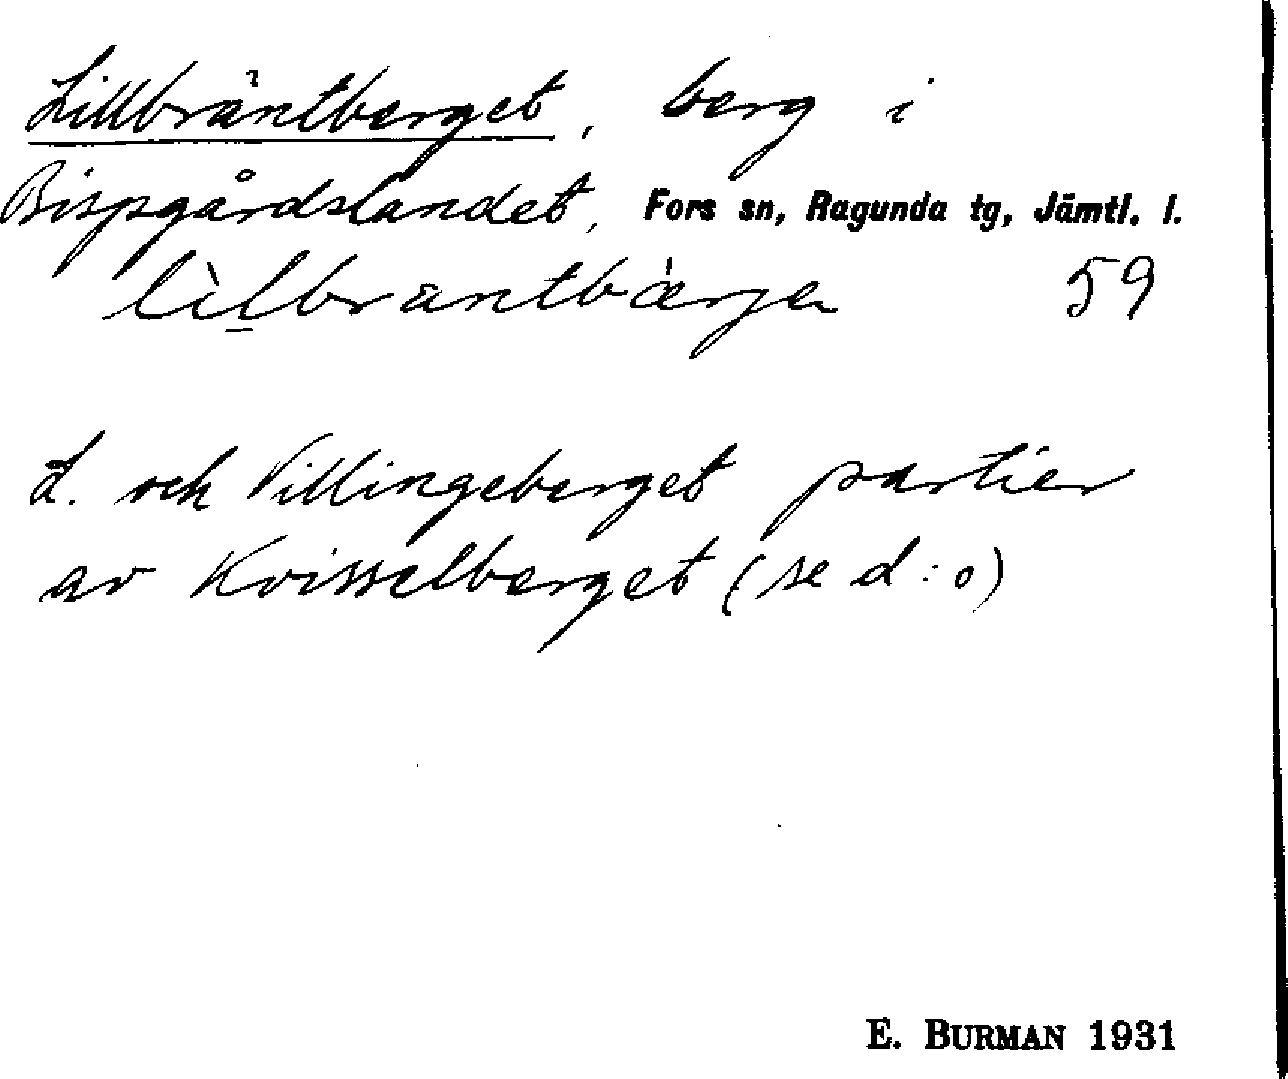 Lillbräntberget, berg i
Bispgårdslandet, Fors sn, Ragunda tg, Jämtl. l.
lìl̲brantbærjen 59
L. och Villingeberget partier
av Kvisselberget (se d:o)
E. BURMAN 1931